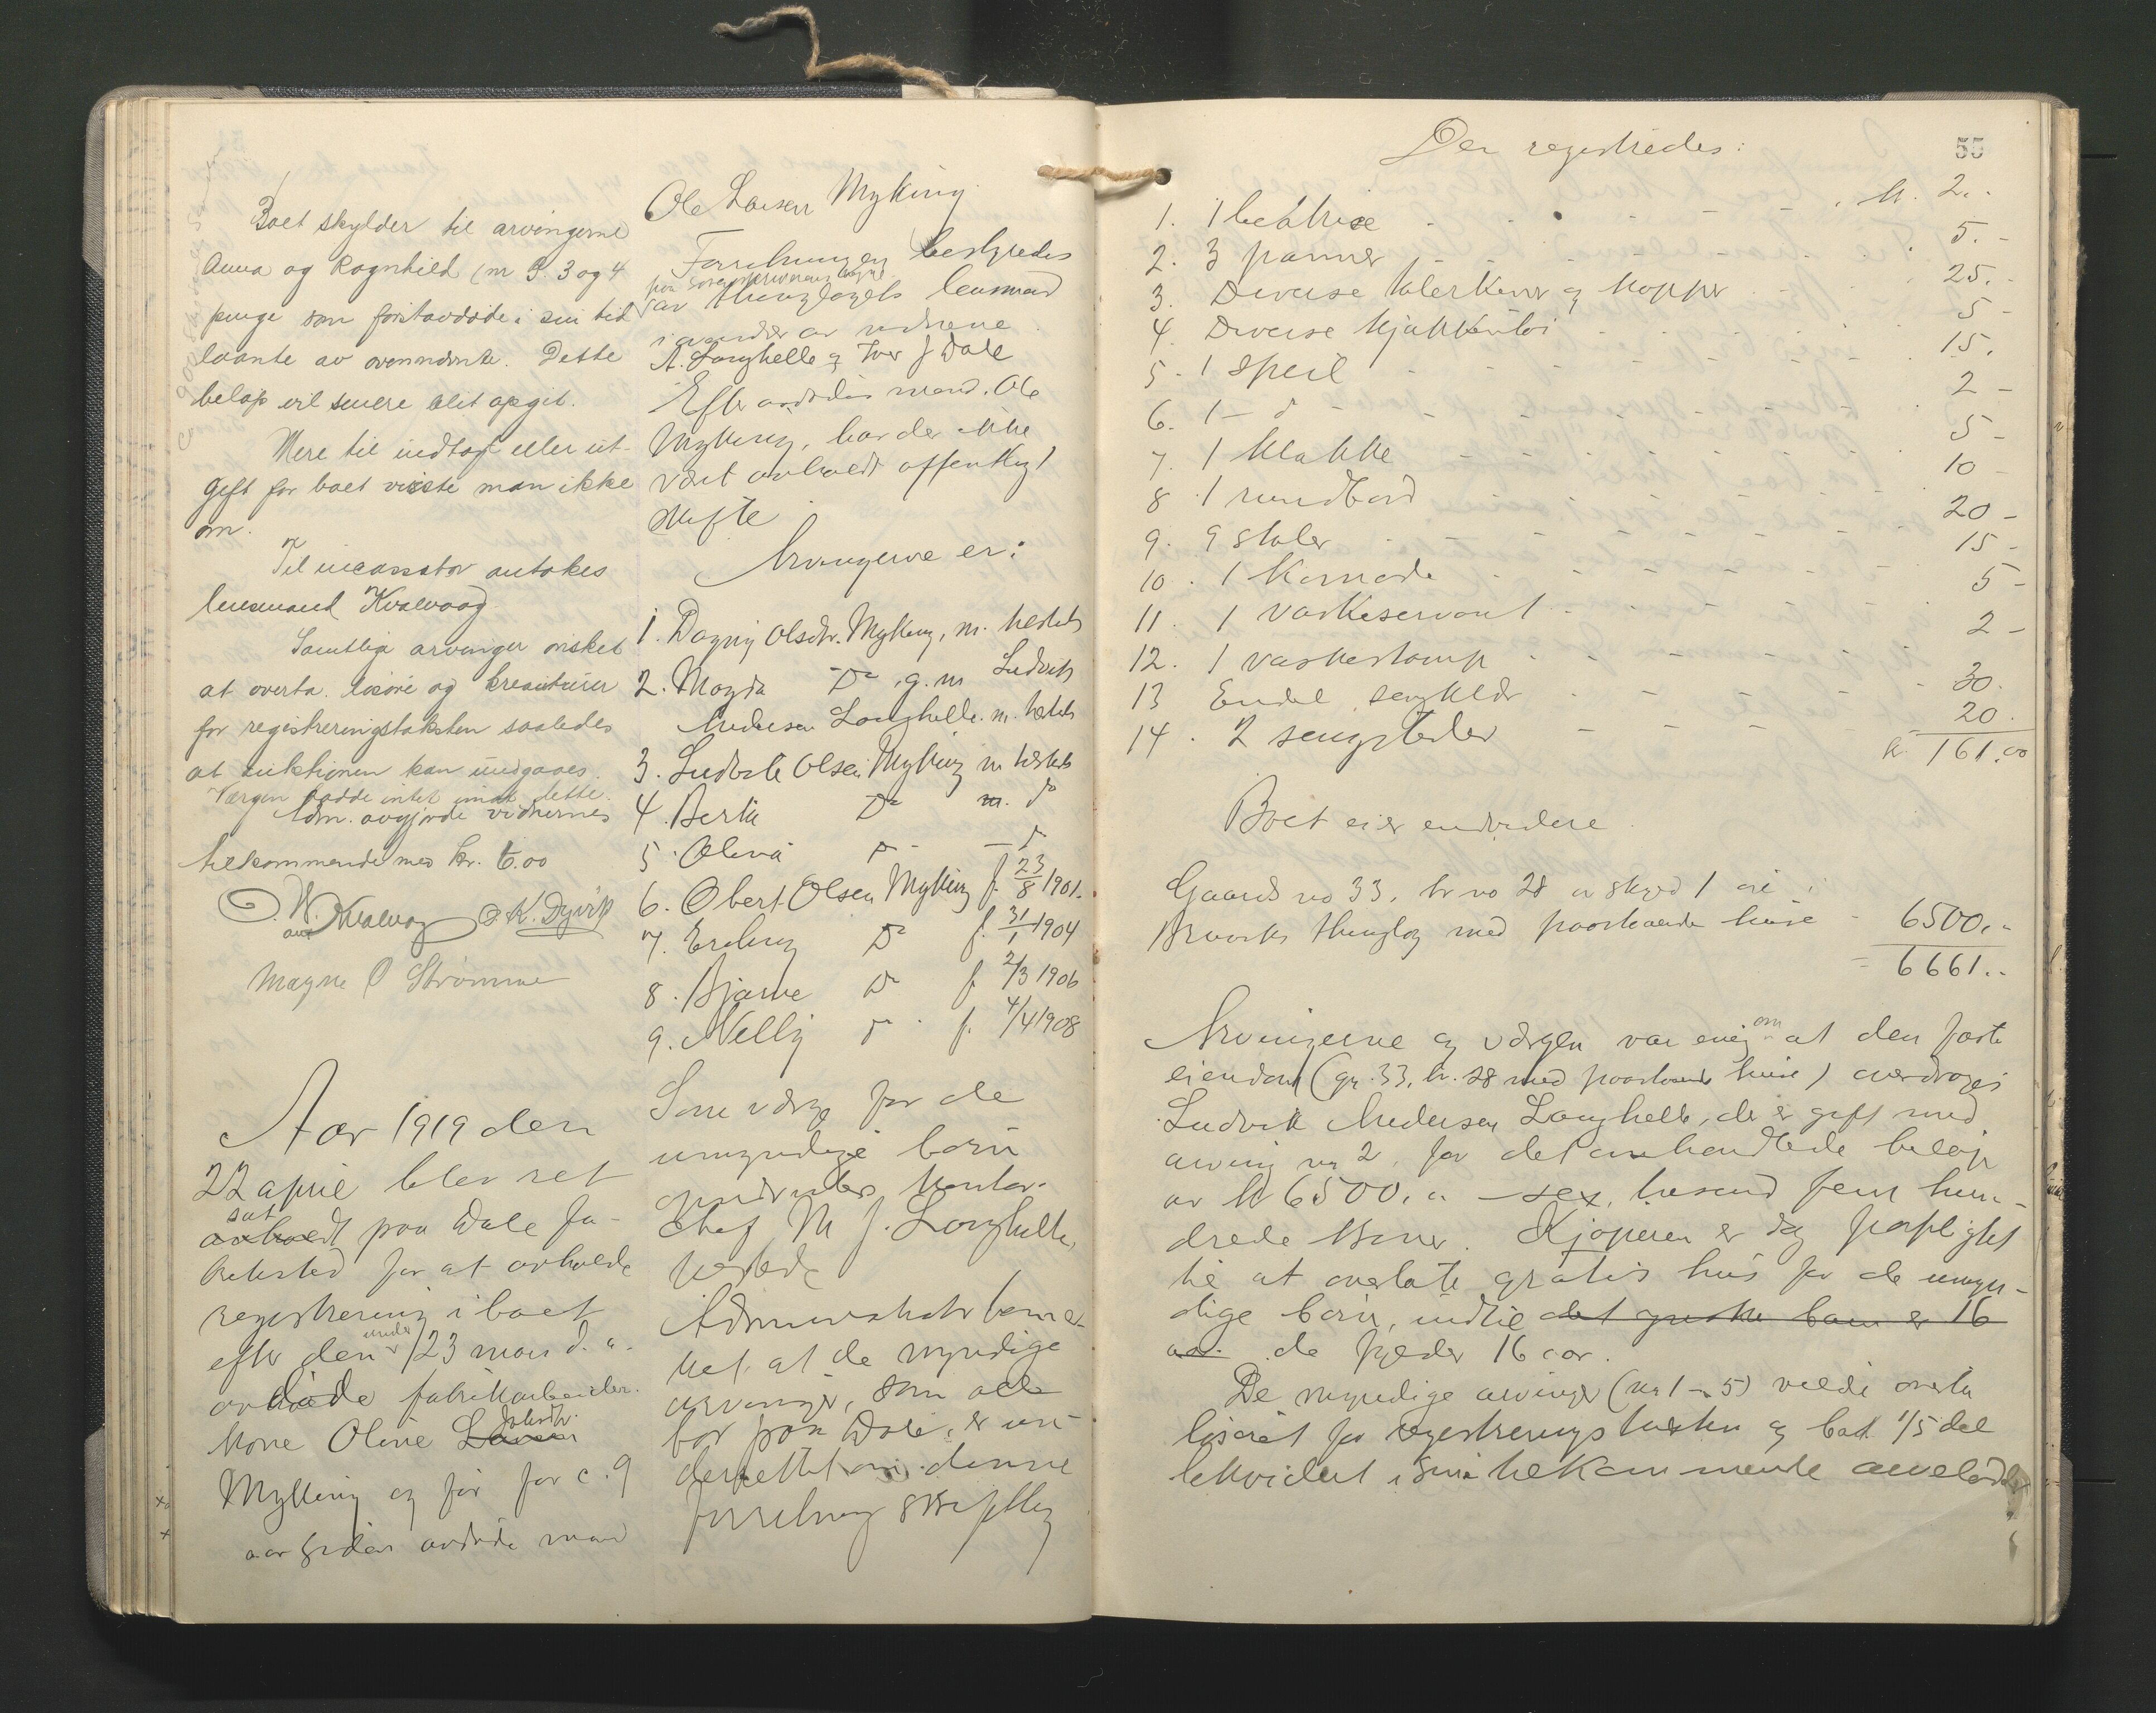 Boet skylder til arvingerne
Anna og Ragnhild (nr 3 og 4
penge som førstavdøde i sin tid
laante av ovennævnte. Dette
beløp vil senere blit opgit.
Mere til indtægt eller ut-
gift for boet visste man ikke
om.
Til incassator antokes
lensmand Kvalvaag
Samtlige arvinger ønsket
at overta løsøre og kreaturer
for registreringstaksten saaledes
at auktionen kan undgaaes.
Værgen hadde intet imot dette.
Adm. avgjorde vidnernes
tilkommende med kr. 6.00
O. W. Kvalvaag O. K. Dyvik
Magne O Strømme
Aar 1919 den
22 april blev ret
sat
avholdt paa Dale fa-
briksted for at avholde
registrering i boet
efter den under 23 mars d. a.
avdøde fabrikarbeider
kone Oline Larsen
Mykking og før for c. 9
aar siden avdøde mand
Ole Larsen Myking.
Forretningen bestyredes
paa sorenskriverens vegne
av Hauglagets lensmand
i nærvær av vidnene
A. Langhelle og Iver J Dale
Efter avdødes mand. Ole
Myking, har der ikke
vært avholdt offentligt
skifte
Arvingerne er:
1. Dagny Olsdtr. Myking, m. hersteds
2. Magda Do g. m Ludvik
Andersen Langhelle m. hersteds
3. Ludvik Olsen Myking m hersteds
4. Berta Do m. do
5. Olina Do — do
6. Obert Olsen Myking f. 23/8 1901.
7. Erling Do f. 31/1 1904
8. Bjarne Do f. 2/3 1906
9. Nelly Do f. 4/4 1908
Som værge for de
umyndige børn
opnævntes kontor-
chef M J. Langhelle,
hersteds
Administrator bemer-
ket at de myndige
arvinger, som alle
bor paa Dale, er un-
derrettet om denne
forretning skriftlig
55
Der registredes:
1. 1 kr. 2.-
2. 3 panner 5.-
3. Diverse talerkener og kopper 25.-
4. Diverse kjøkkentøi 5-
5. 1 speil 15.
6. 1 — do 2-
7. 1 klokke 5-
8. 1 rundbord 10-
9. 9 stoler 20-
10. 1 komode 15-
11. 1 vaskeservant 5-
12. 1 vaskestamp 2-
13 Endel sengklær 30.
14. 2 sengsteder 20.
kr. 161.00
Boet eier endvidere
Gaards no 33, br no 28 av skyld 1 øre i
Bruviks thinglag med paastaaende huse - 6500.-
- 6661.-
Arvingerne og værgen var enig om at den faste
eiendom (gr. 33, br. 28 med paastaaende huse) overdrages
Ludvik Andersen Langhelle, der er gift med
arving nr 2, for det omhandlede beløp
av kr 6500.- sex tusend fem hun-
drede kroner. Kjøperen er dog forpligtet
til at overlate gratis hus for de umyn-
dige børn, indtil det yngste barn er 16
aar. de fylder 16 aar.
De myndige arvinger (nr 1-5) vilde overta
løsøret for registreringstaksten og bad 1/5 del
likvidert i sine tilkommende arvelodder